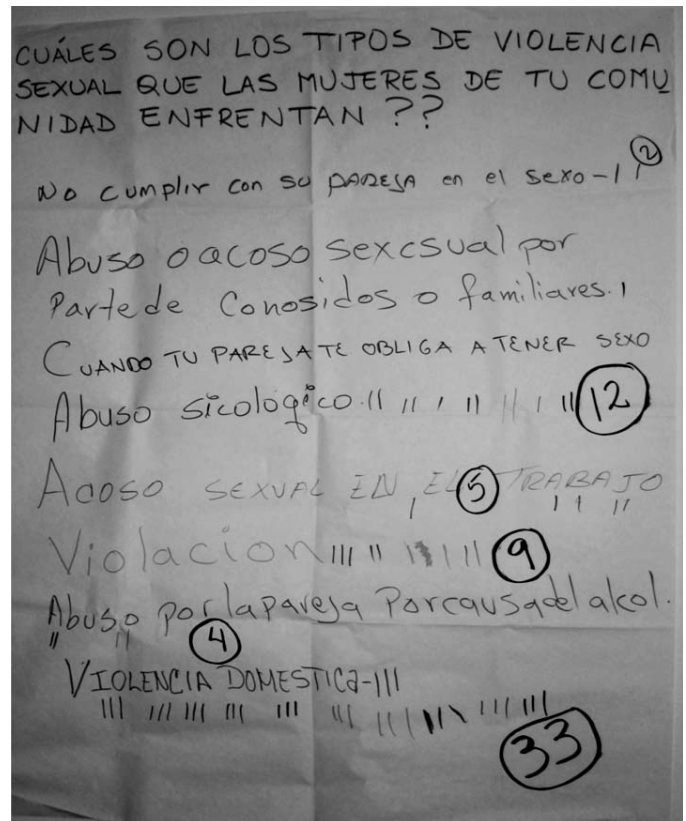 CUÁLES SON LOS TIPOS DE VIOLENCIA
SEXUAL QUE LAS MUJERES DE TU COMU
NIDAD ENFRENTAN ??
No cumplir con su PAREJA en el sexo-1 1 2
Abuso o acoso sexcsual por
Parte de Conosidos o familiares. 1
CUANDO TU PAREJA TE OBLIGA A TENER SEXO
Abuso sicologico. 11 11 1 11 11 1 11 12
Acoso SEXUAL EN EL TRABAJO
1 5 1 1 11
Violacion 1111 11 1 1 1 1 9
Abuso por la pareja Por causa del alcol.
11 11 4
VIOLENCIA DOMESTICA-111
111 111 111 111 111 111 111 111 111 111 33